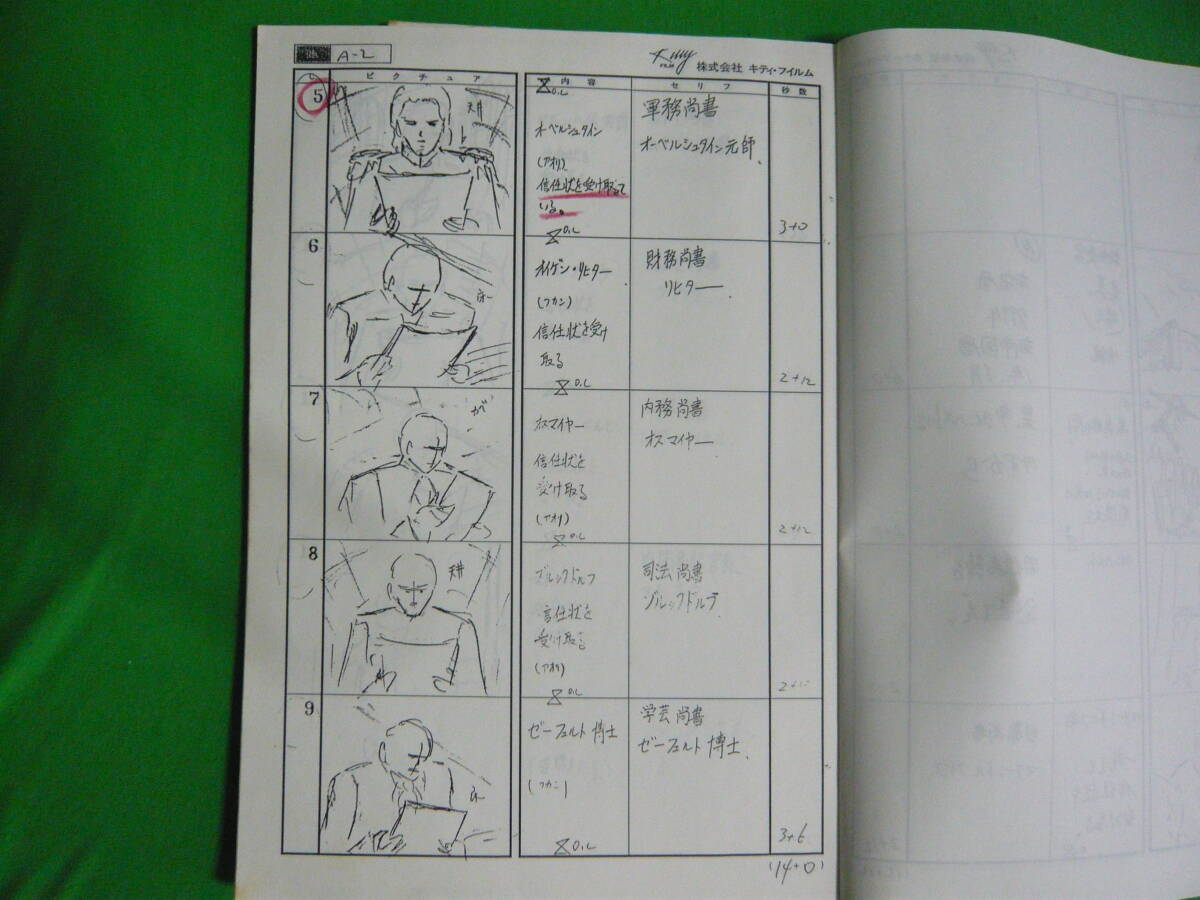 A-2
Kitty
FILM
株式会社 キティ・フイルム
ピクチュア
内容
セリフ
秒数
5
天井
O.L
オーベルシュタイン
(アオリ)
信任状を受け取って
いる。
O.L
軍務尚書
オーベルシュタイン元師、
3+0
6
床
オイゲン・リヒター
(フカン)
信任状を受け
取る
O.L
財務尚書
リヒター、
2+12
7
カベ
オスマイヤー
信任状を
受け取る
(アオリ)
O.L
内務尚書
オスマイヤー
2+12
8
天井
ブルックドルフ
信任状を
受け取る
(アオリ)
O.L
司法尚書
ブルックドルフ
9
床
ゼーフェルト博士
(フカン)
O.L
学芸尚書
ゼーフェルト博士、
3+6
(14+0)